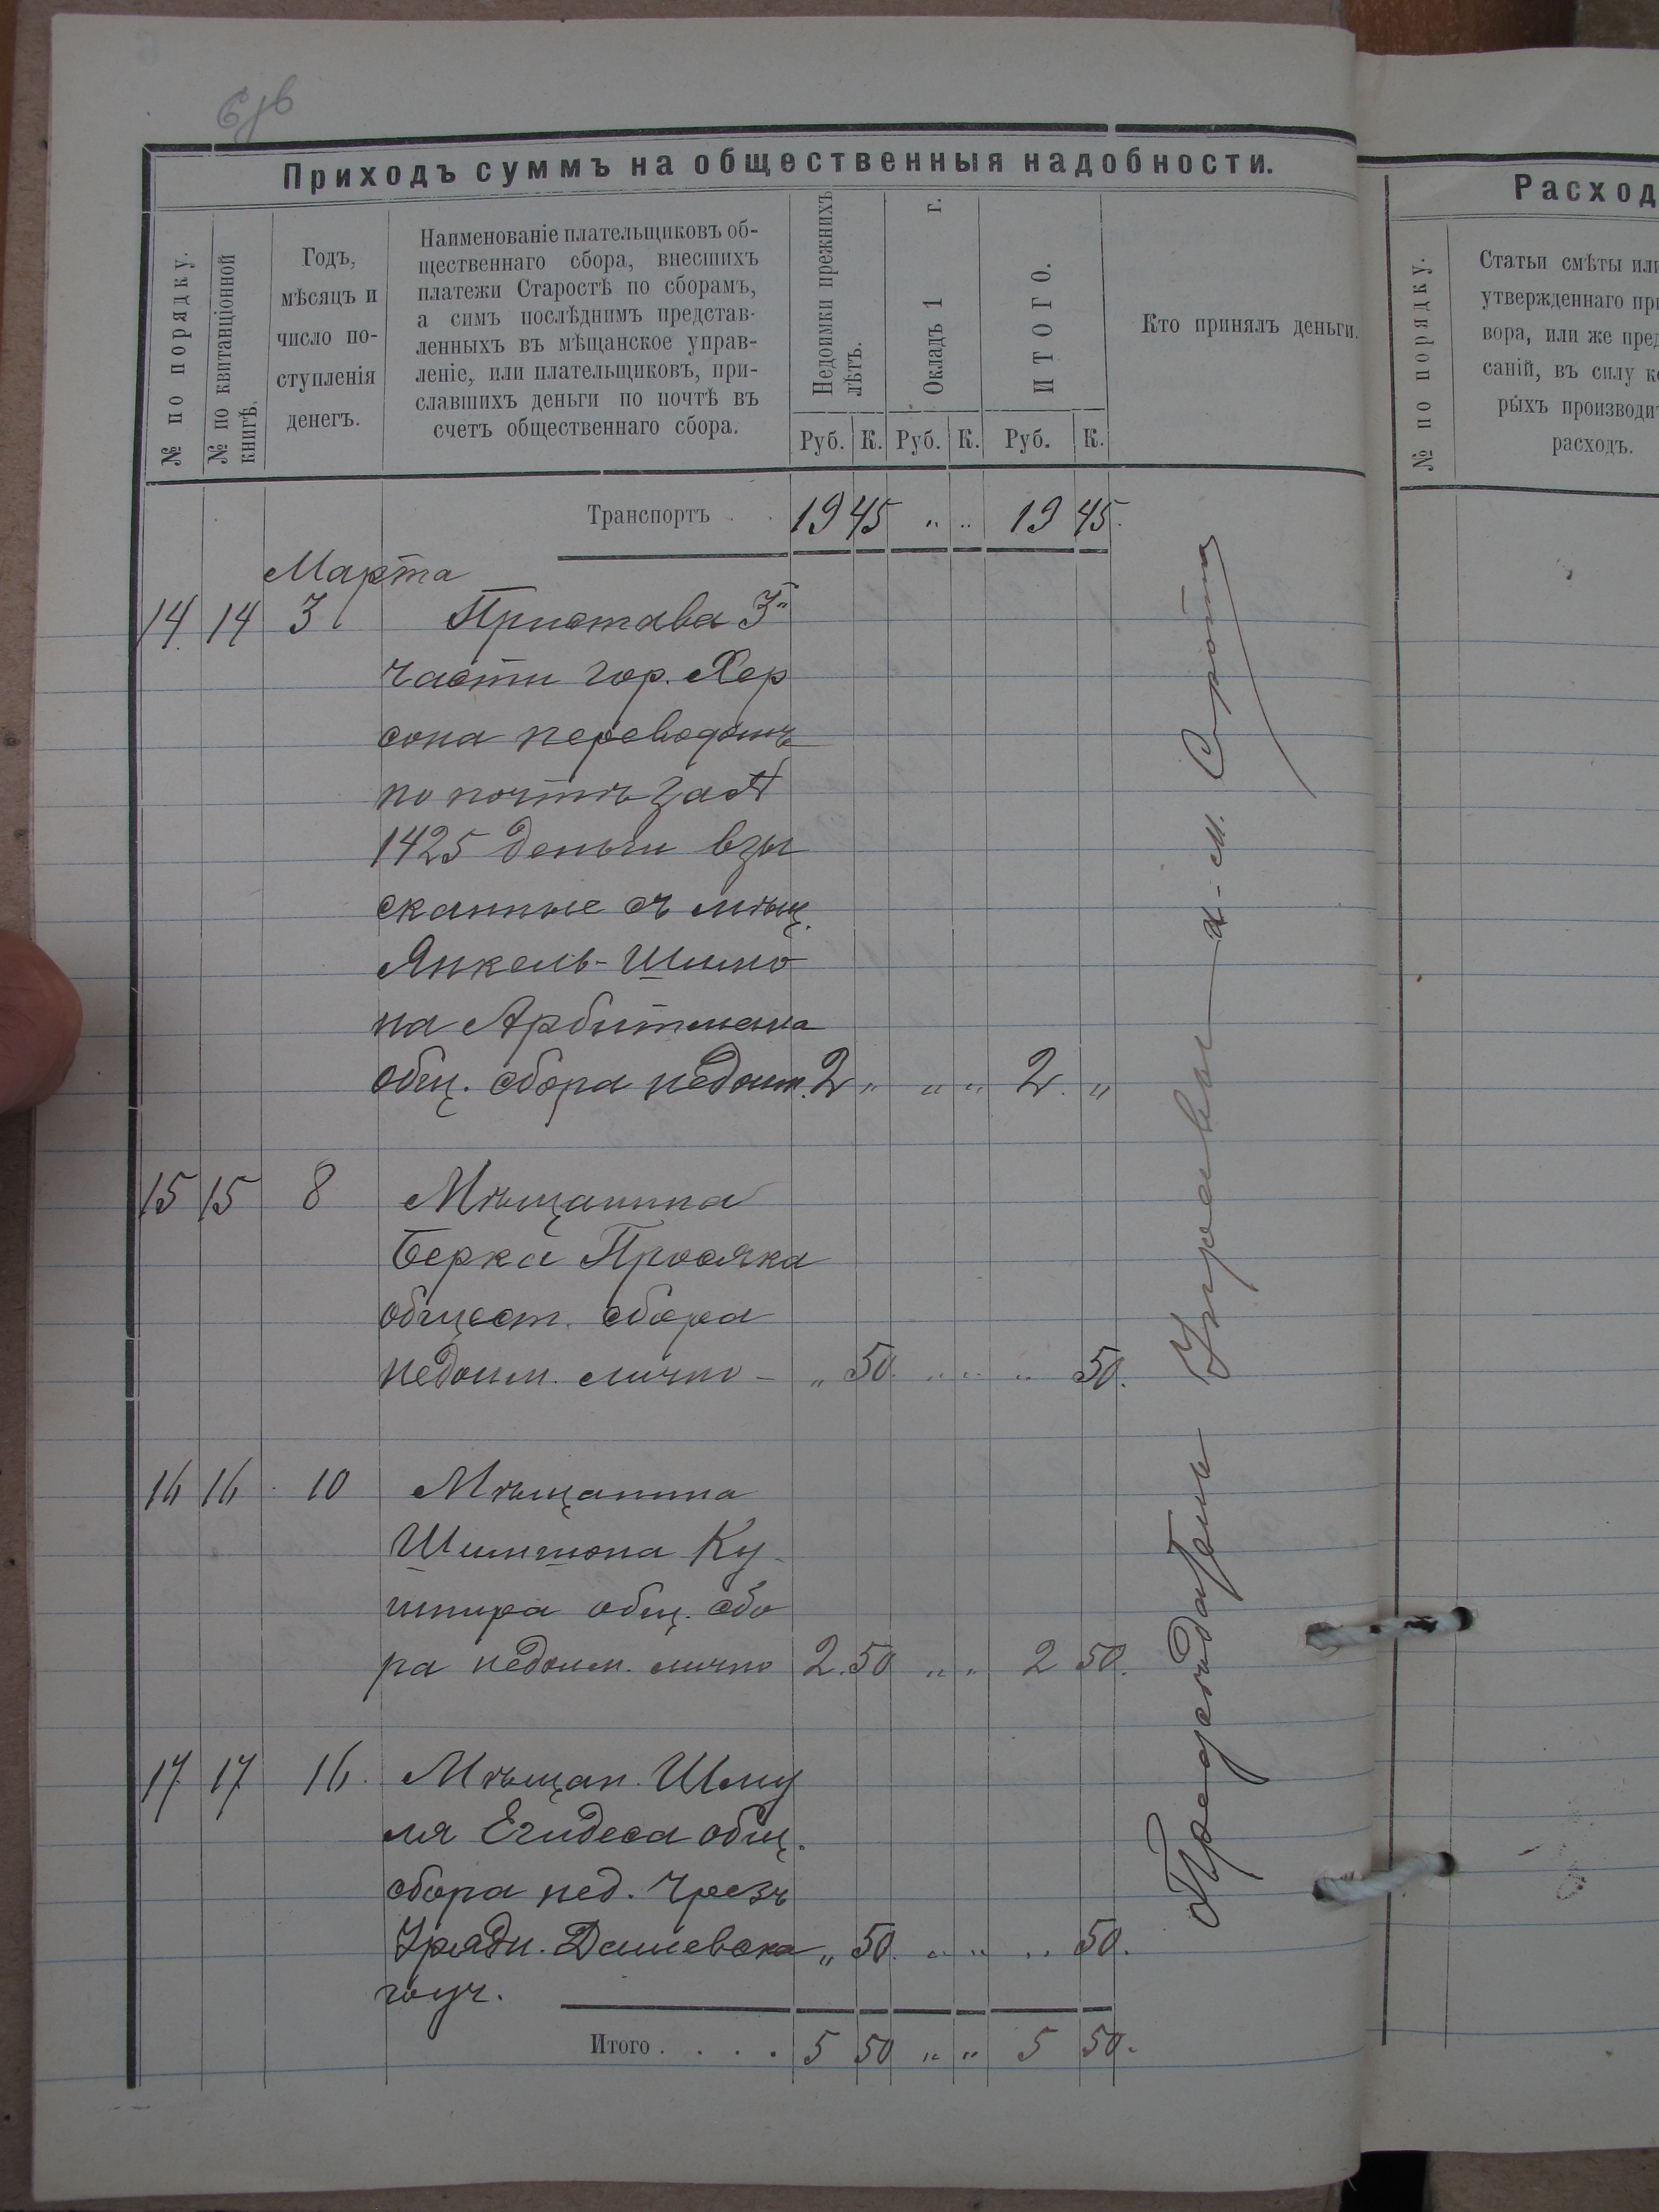 6об
Приходъ суммъ на общественныя надобности.
№ по порядку.
№ по квитанціонной
книгѣ.
Годъ,
мѣсяцъ и
число по-
ступленія
денегъ.
Наименованіе плательщиковъ об-
щественнаго сбора, внесшихъ
платежи Старостѣ по сборамъ,
а симъ послѣднимъ представ-
ленныхъ въ мѣщанское управ-
леніе, или плательщиковъ, при-
славшихъ деньги по почтѣ въ
счетъ общественнаго сбора.
Недоимки прежнихъ
лѣтъ.
Окладъ 1 г.
ИТОГО.
Кто принялъ деньги.
Руб. К. Руб. К. Руб. К.
Транспортъ . . 19 45 „ „ 19 45.
Марта
14. 14 3 Пристава 3й
части гор. Хер
сона переводомъ
по почтѣ за №
1425 деньги взы
сканные съ мѣщ.
Янкель-Шимо
на Арбитмана
общ. сбора недоим. 2 „ „ „ 2. „
15 15 8 Мѣщанина
Берка Просяка
общест. сбора
недоим. лично - „ 50. „ „ „ 50.
16 16 10 Мѣщанина
Шимшона Ку-
шнира общ. сбо
ра недоим. лично 2.50 „ „ 2 50.
17. 17. 16. Мѣщан. Шму
ля Егидеса общ.
сбора нед. Чрезъ
Урядн. Дашевска
го уч. „ 50. „ „ „ 50.
Итого . . . . 5 50 „ „ 5 50.
Предсѣдатель Управы
Расход
№ по порядку.
Статьи смѣты или
утвержденнаго при
вора, или же пред
саній, въ силу ко
рыхъ производит
расходъ.